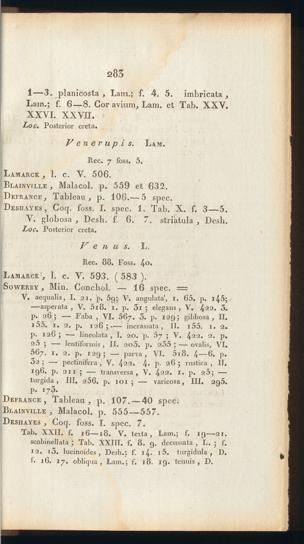 283
1—3. planicosta, Lam.; f. 4. 5. imbricata,
Lam.; f. 6—8. Cor avium, Lam. et Tab. XXV.
XXVI. XXVII.
Loc. Posterior creta.
Venerupis. LAM.
Rec. 7 foss. 5.
LAMARCK, l. c. V. 506.
BLAINVILLE, Malacol. p. 559 et 632.
DEFRANCE, Tableau, p. 106.—5 spec.
DESHAYES, Coq. foss. I. spec. 1. Tab. X. f. 3—5.
V. globosa, Desh. f. 6. 7. striatula, Desh.
Loc. Posterior creta.
Venus. L.
Rec. 88. Foss. 40.
LAMARCK, l. c. V. 593. (583).
SOWERBY, Min. Conchol. — 16 spec. =
V. aequalis, I. 21. p. 59; V. angulata, I. 65. p. 145;
—asperata, V. 518. 1. p. 31; elegans, V. 422. 3.
p. 26; — Faba, VI. 567. 3. p. 129; gibbosa, II.
155. 1. 2. p. 126;— incrassata, II. 155. 1. 2.
p. 126; — lineolata, I. 20. p. 57; V. 422. 2. p.
25; — lentiformis, II. 203. p. 235; — ovalis, VI.
567. 1. 2. p. 129; — parva, VI. 518. 4—6. p.
32; — pectinifera, V. 422. 4. p. 26; rustica, II.
196. p. 211; — transversa, V. 422. 1. p. 25; —
turgida, III. 256. p. 101; — varicosa, III. 295.
p. 173.
DEFRANCE, Tableau, p. 107.—40 spec.
BLAINVILLE, Malacol. p. 555—557.
DESHAYES, Coq. foss. I. spec. 7.
Tab. XXII. f. 16—18. V. texta, Lam.; f. 19—21.
scobinellata; Tab. XXIII. f. 8. 9. decussata, L.; f.
12. 13. lucinoides, Desh.; f. 14. 15. turgidula, D.
f. 16. 17. obliqua, Lam.; f. 18. 19. tenuis, D.